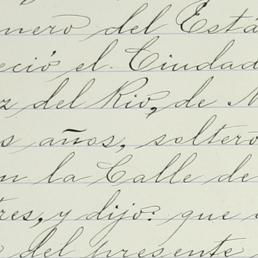 nero del Está
eció el Ciudad
z del Rio, de M
s años, soltero
n la Calle de
tres, y dijo: que
del presente